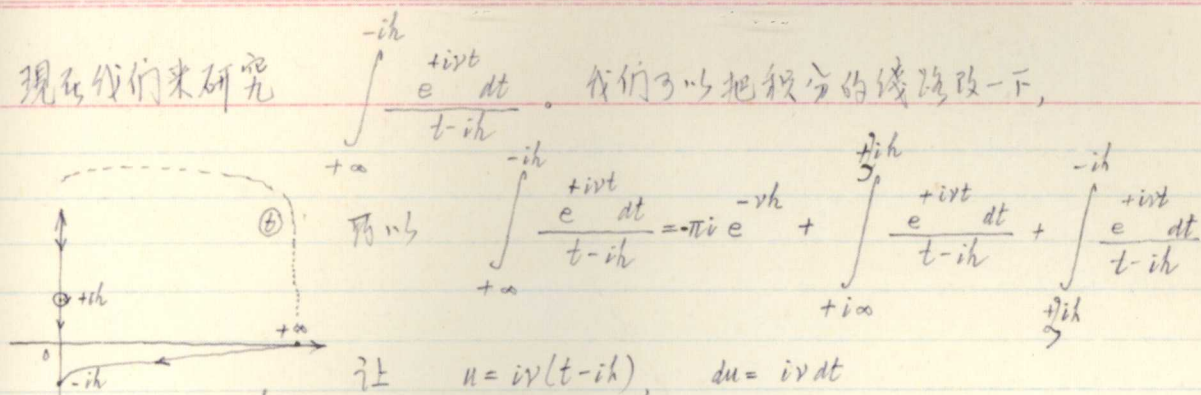 現在我们来研究 $\int_{+\infty}^{-ih} \frac{e^{+i\nu t} dt}{t-ih}$。我们可以把积分的线路改一下,
所以 $\int_{+\infty}^{-ih} \frac{e^{+i\nu t} dt}{t-ih} = -\pi i e^{-\nu h} + \int_{+i\infty}^{+ih} \frac{e^{+i\nu t} dt}{t-ih} + \int_{+ih}^{-ih} \frac{e^{+i\nu t} dt}{t-ih}$
t
+ih
+∞
0
-ih
让 u = iν(t-ih), du = iν dt